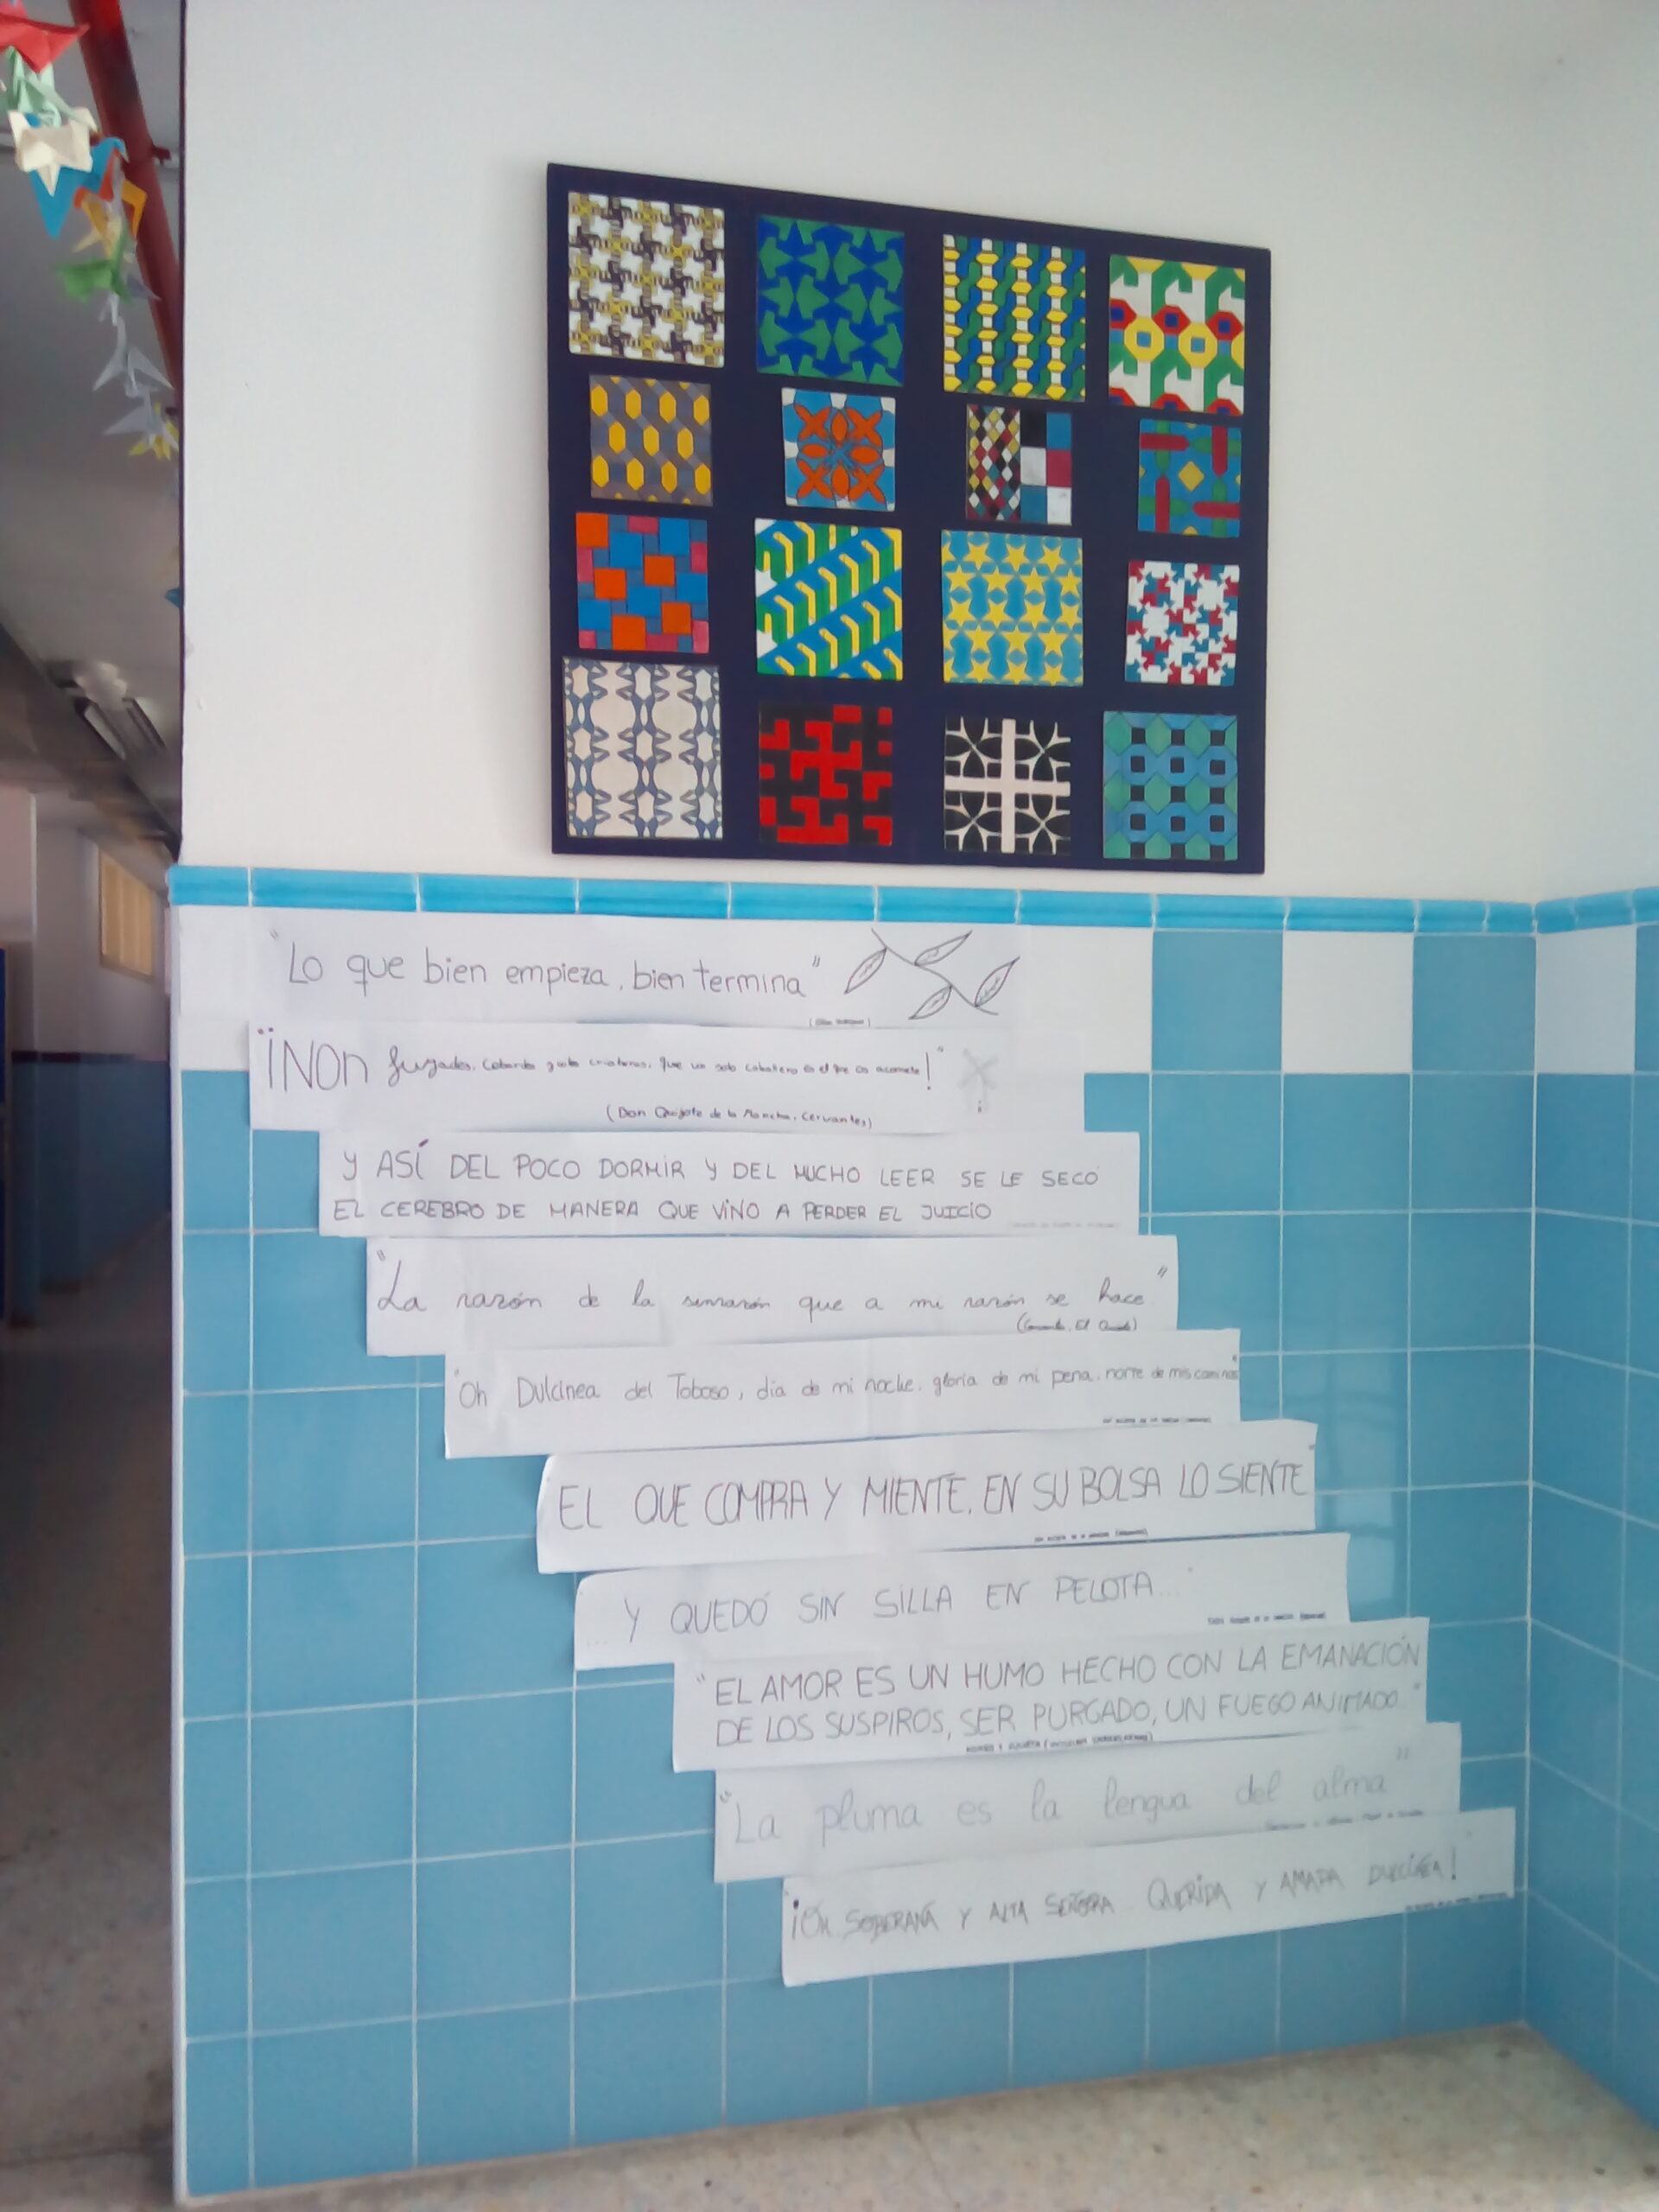 "Lo que bien empieza, bien termina"
¡Non fuyades, cobardes y viles criaturas, que un solo caballero es el que os acomete!"
(Don Quijote de la Mancha, Cervantes)
Y ASÍ DEL POCO DORMIR Y DEL MUCHO LEER SE LE SECÓ
EL CEREBRO DE MANERA QUE VINO A PERDER EL JUICIO
"La razón de la sinrazón que a mi razón se hace"
"Oh Dulcinea del Toboso, día de mi noche, gloria de mi pena, norte de mis caminos"
EL QUE COMPRA Y MIENTE, EN SU BOLSA LO SIENTE
... Y QUEDÓ SIN SILLA EN PELOTA..."
"EL AMOR ES UN HUMO HECHO CON LA EMANACIÓN
DE LOS SUSPIROS, SER PURGADO, UN FUEGO ANIMADO."
ROMEO Y JULIETA (WILLIAM SHAKESPEARE)
"La pluma es la lengua del alma"
¡OH SOBERANA Y ALTA SEÑORA QUERIDA Y AMADA DULCINEA!